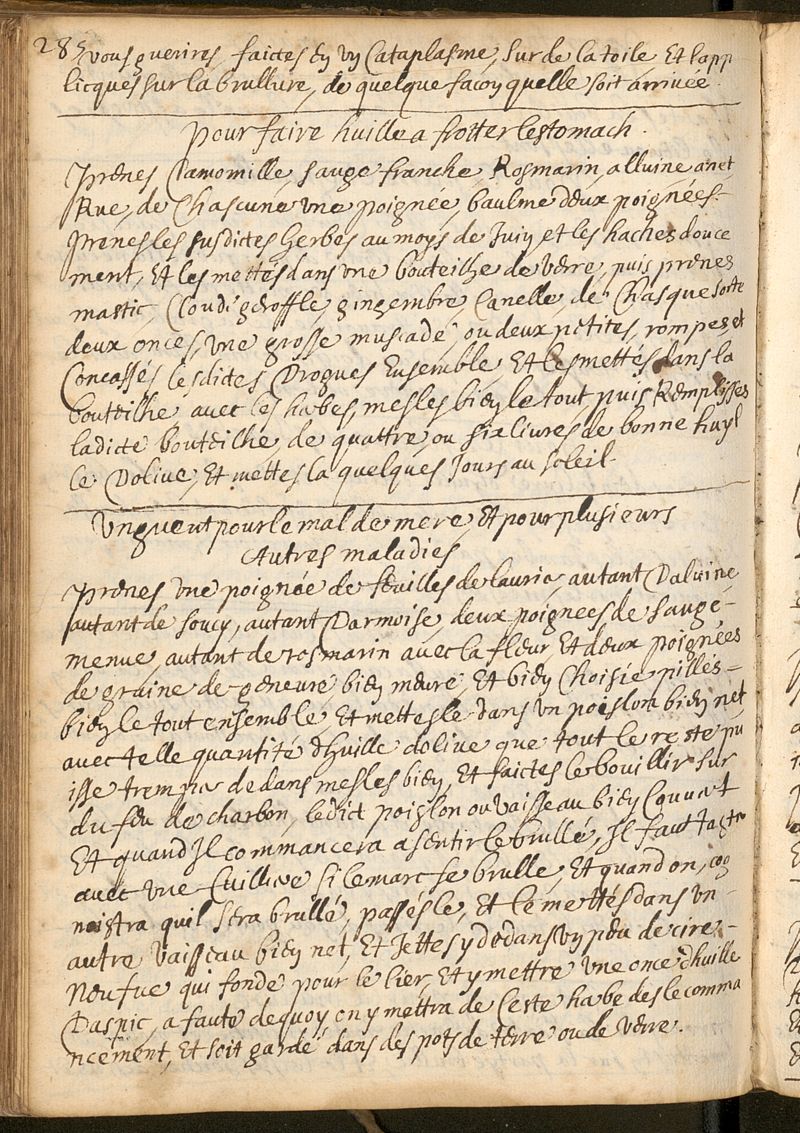 285 vous guerires, faictes en un Cataplasme, sur de la toile Et l'app
licques sur la brullure, de quelque facon quelle soit arrivée.
pour faire huille a frotter lestomach.
Prenes Camomille, sauge franche, Rosmarin, alluine anet,
Rue, de Chascune une poignée, baulme deux poignées.
prenes les susdictes herbes au moys de Juin et les haches douce
ment, Et les mettés dans une bouteilhe de verre, puis prenes
mastic, Cloud, geroffle, gingembre, Canelle, de Chasque sorte
deux onces, une grosse muscade, ou deux petites, rompes et
Concassés lesdictes Drogues Ensemble, Et les mettés dans la
bouteilhe avec les habes mesles bien le tout, puis Remplisses
ladicte bouteilhe, de quattre, ou six livres de bonne huyl
le Dolive, Et mettes la quelques Jours au soleil.
Unguent pour le mal de mere, Et pour plusieurs
Autres maladies
Prenes une poignée de feuilles de laurie, autant Daluine,
autant de soucy, autant Darmoise, deux poignees de sauge-
menue, autant de rosmarin avec la fleur, Et deux poignées
de graine de geneure bien meure, Et bien Choisie, pillés-
bien le tout ensemble, Et mettes le dans un poislon bien net,
avec telle quantité dhuille dolive que tout le reste pu
isse tremper dedans mesles bien, Et faictes le bouillir sur
du feu de charbon, ledict poislon ou vaisseau bien Couvert
Et quand Il commancera a sentir le brullé, Il faut taster
avec une Cuilliere si le marc se brulle, Et quand on, cog
noistra quil sera brullé, passés le, Et le mettés dans un-
autre vaisseau bien net, Et Jettes y dedans un peu de cire-
Neufue qui fonde pour le lier, Et y mettre une once dhuille
Daspic, a faute de quoy on y mettra de Ceste habe des le comma
ncement, Et soit gardé dans des pots de terre ou de verre.